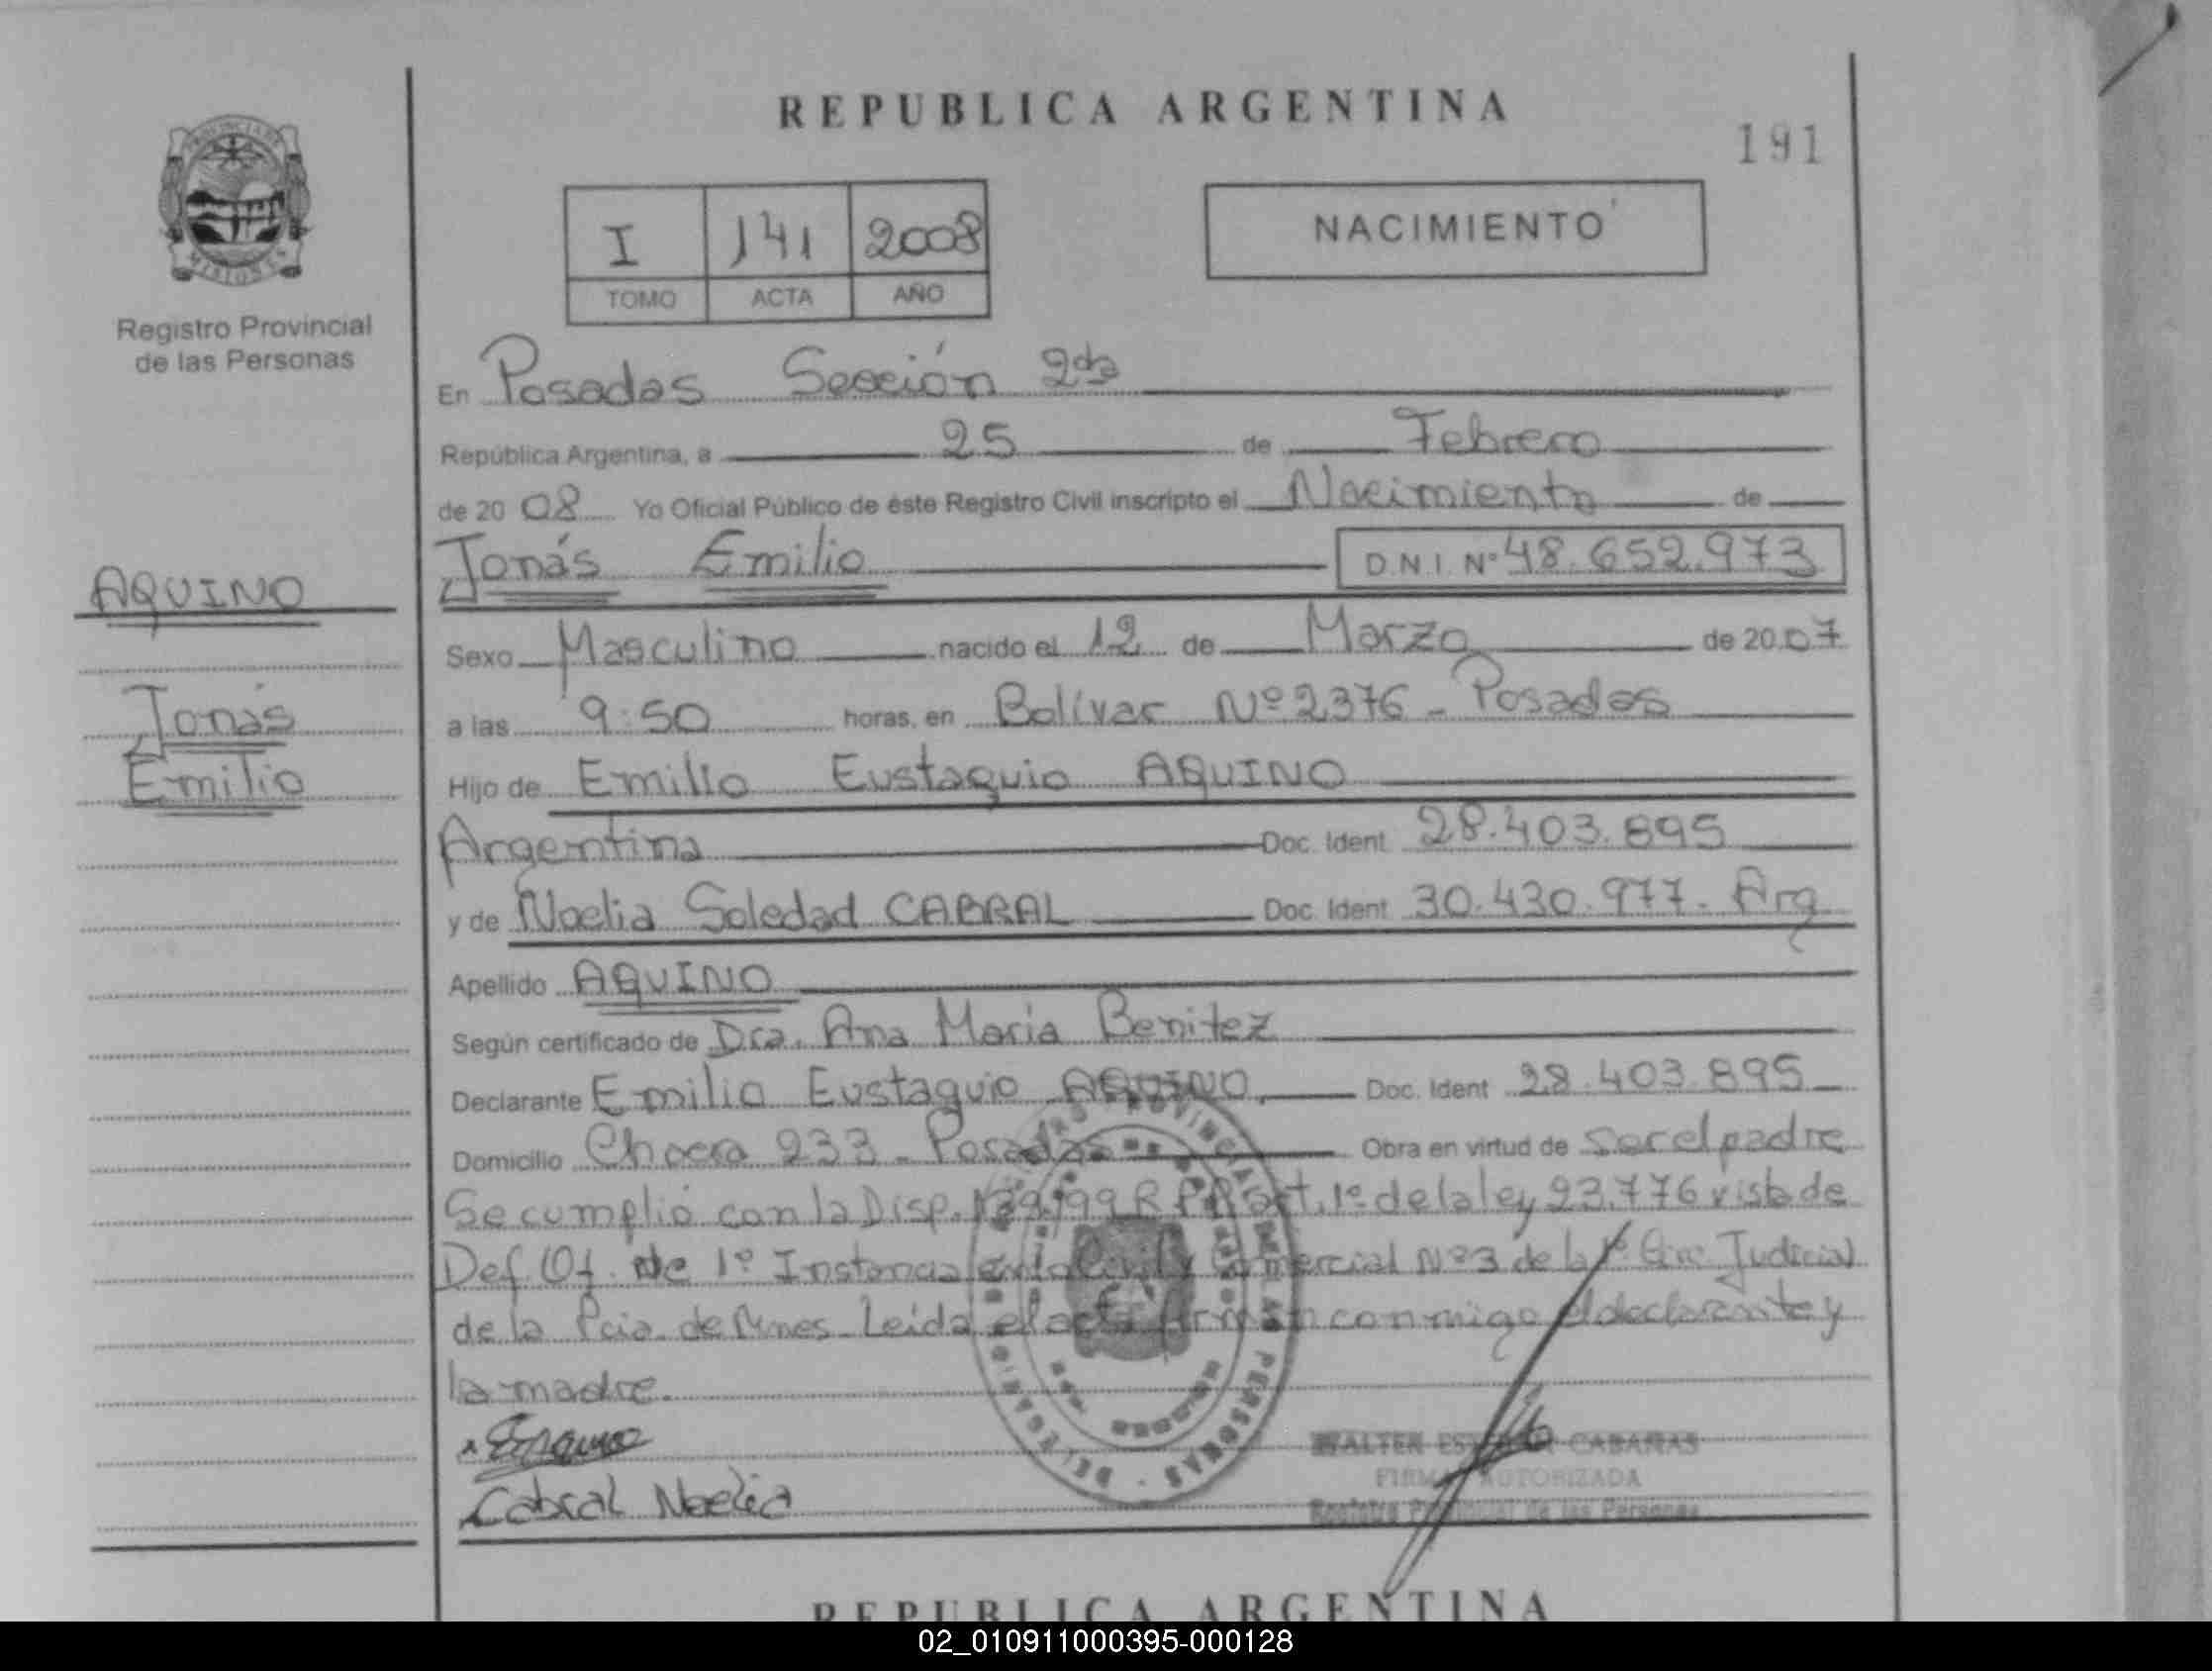 REPUBLICA ARGENTINA
191
PROVINCIA DE
MISIONES
Registro Provincial
de las Personas
I 141 2008
TOMO ACTA AÑO
NACIMIENTO
En Posadas Sección 2da
República Argentina, a 25 de Febrero
de 20 08 Yo Oficial Público de éste Registro Civil inscripto el Nacimiento de
Jonás Emilio D.N.I. Nº 48.652.973
AQUINO
Jonás
Emilio
Sexo Masculino nacido el 12 de Marzo de 20 07
a las 9:50 horas, en Bolívar Nº 2376 - Posadas
Hijo de Emilio Eustaquio AQUINO
Argentina Doc. Ident. 28.403.895
y de Noelia Soledad CABRAL Doc. Ident. 30.430.977. Arg
Apellido AQUINO
Según certificado de Dra. Ana Maria Benitez
Declarante Emilio Eustaquio AQUINO, Doc. Ident. 28.403.895
Domicilio 233 - Posadas Obra en virtud de ser el padre
Se cumplió con la Disp. 139/99 R P P art. 1º de la ley 23.776 vista de
Def. Of. de 1º Instancia en lo Civil y Comercial Nº 3 de la 1º Circ. Judicial
de la Pcia. de Mnes. Leída el acta firman conmigo el declarante y
la madre.
Cabral Noelia
WALTER CABAÑAS
FIRMA AUTORIZADA
Registro Provincial de las Personas
REPUBLICA ARGENTINA
02_010911000395-000128